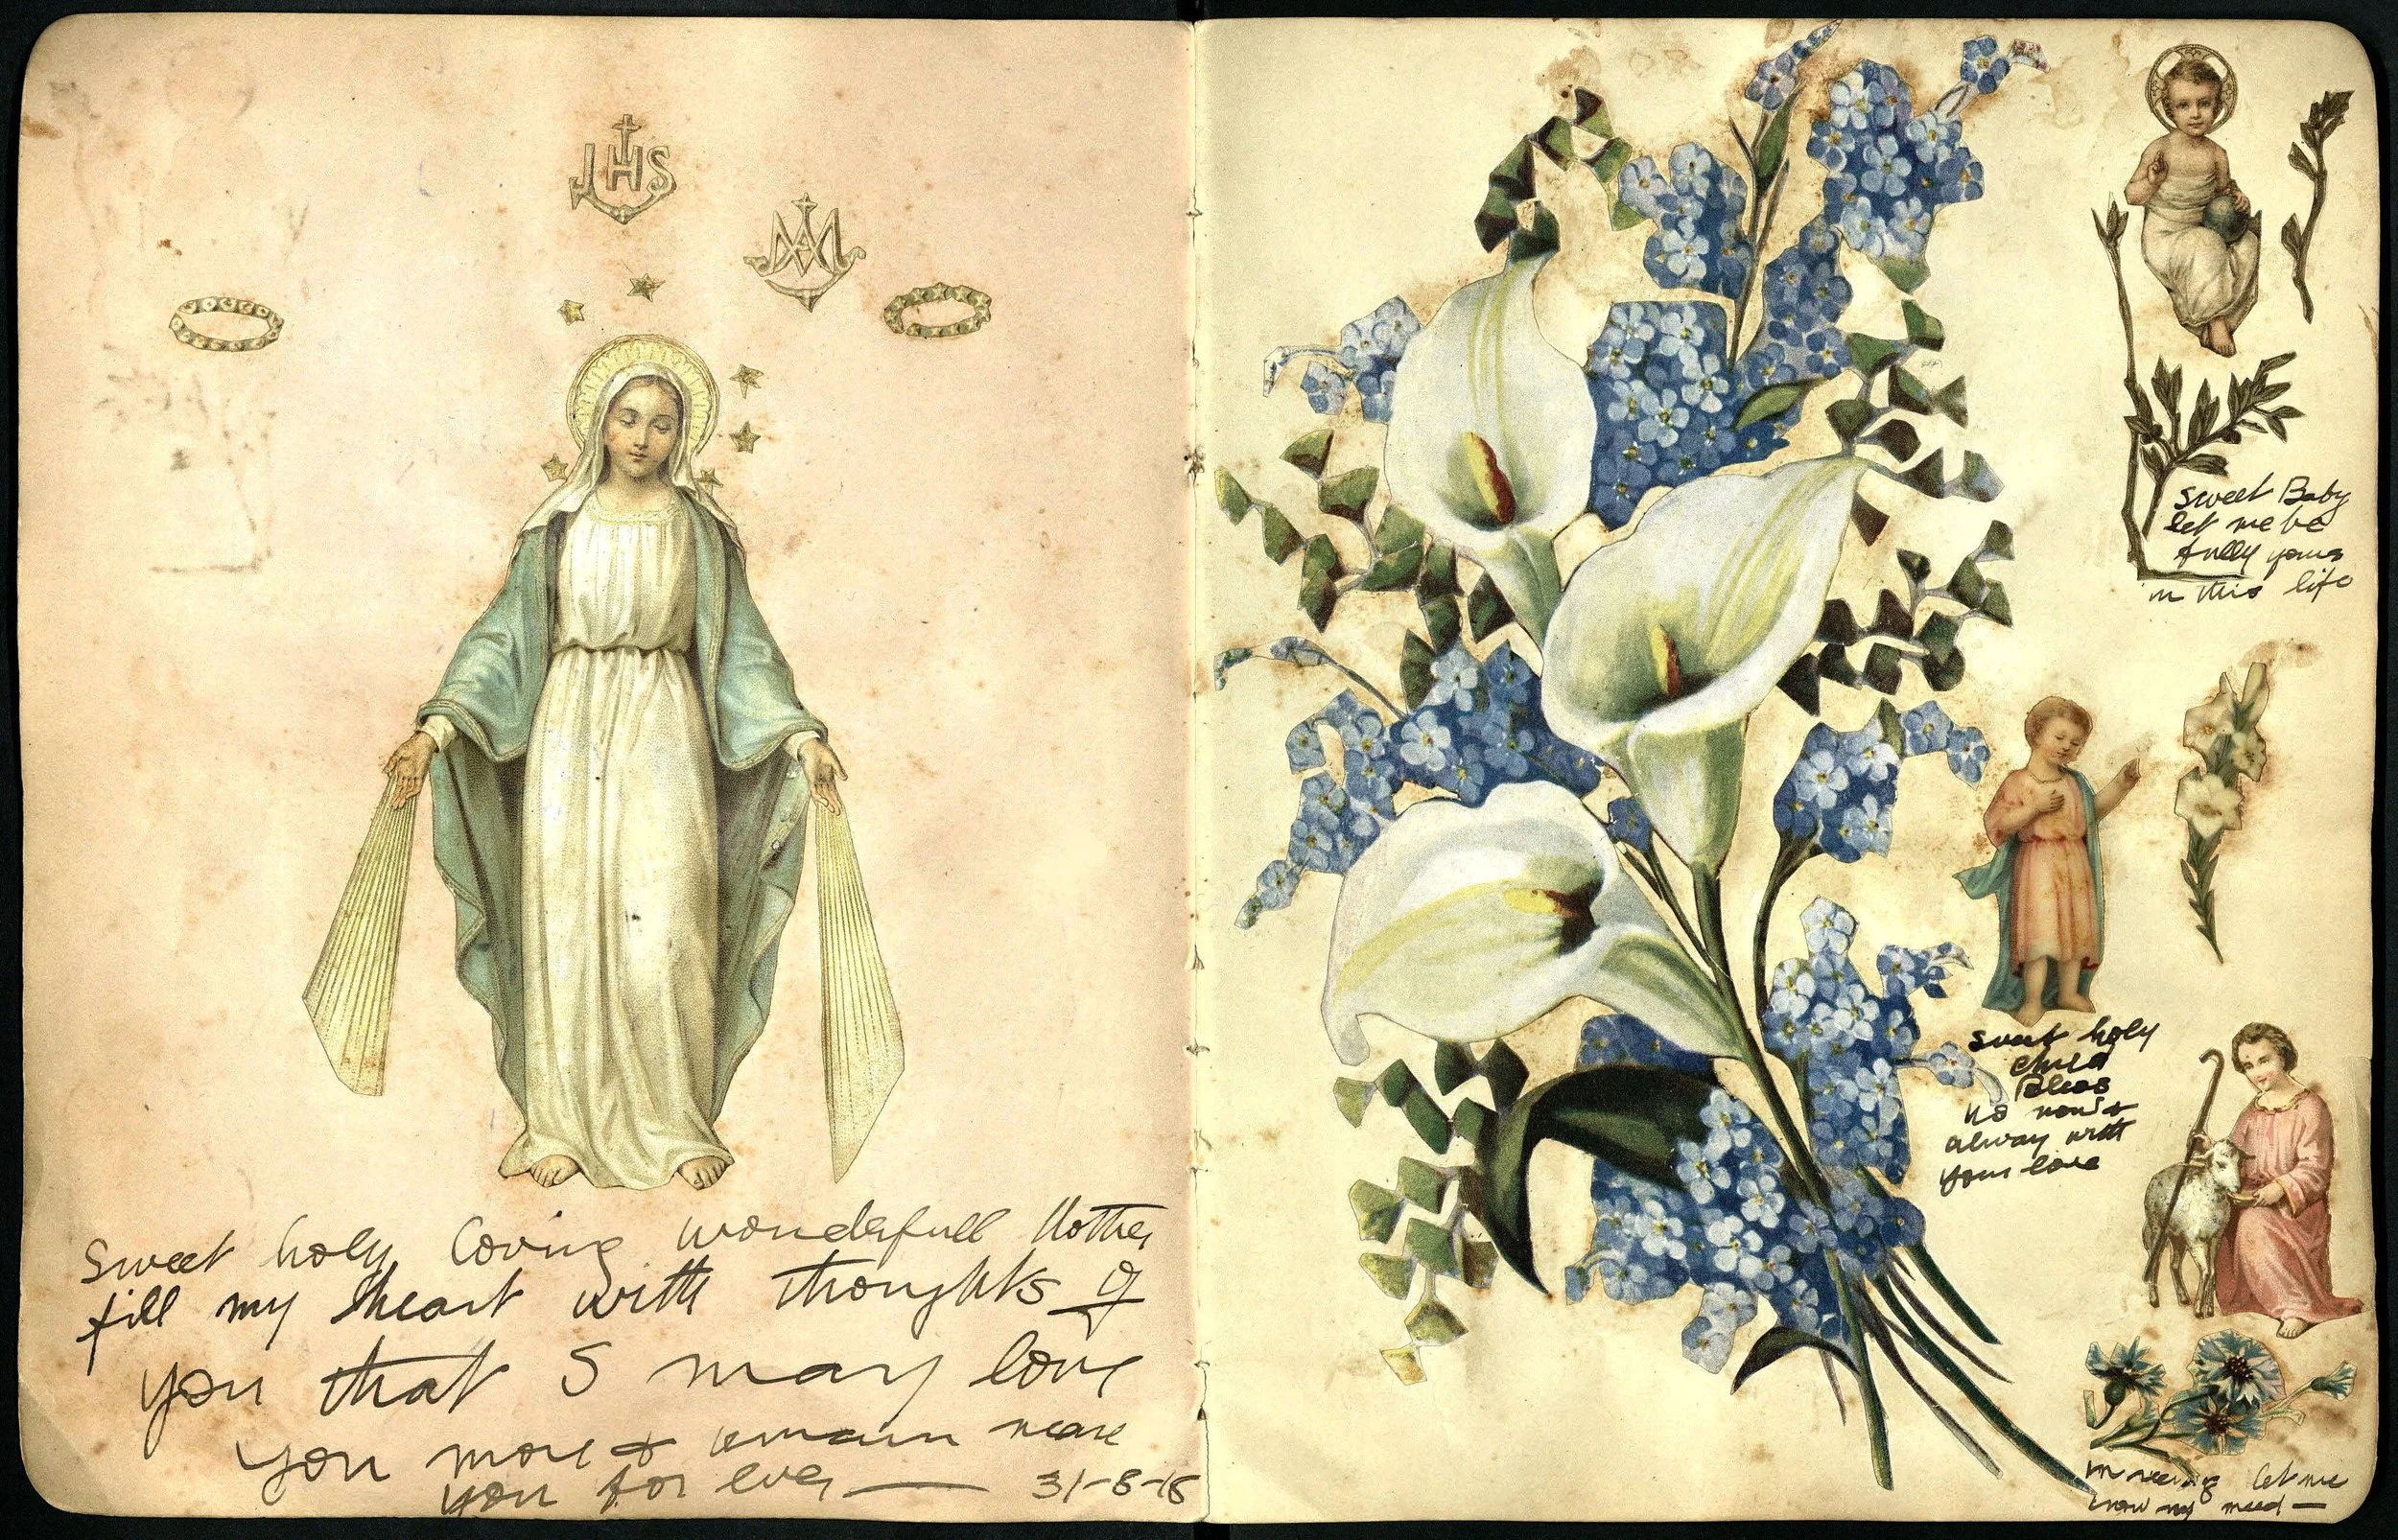 JHS
MA
Sweet holy loving wonderfull Mother
fill my heart with thoughts of
you that I may love
you more & remain neare
you for ever — 31-8-18
Sweet Baby
let me be
fully yours
in this life
Sweet holy
child
Bless
us now &
alway with
your love
let me
know my need —